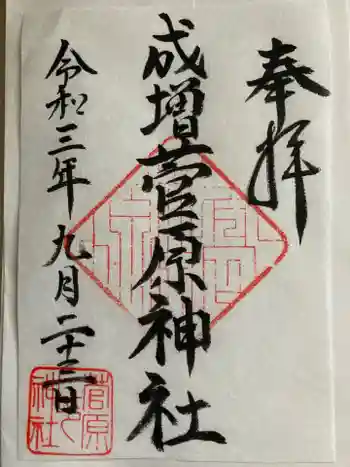 奉拝
成増菅原神社
令和三年九月二十三日
菅原
神社